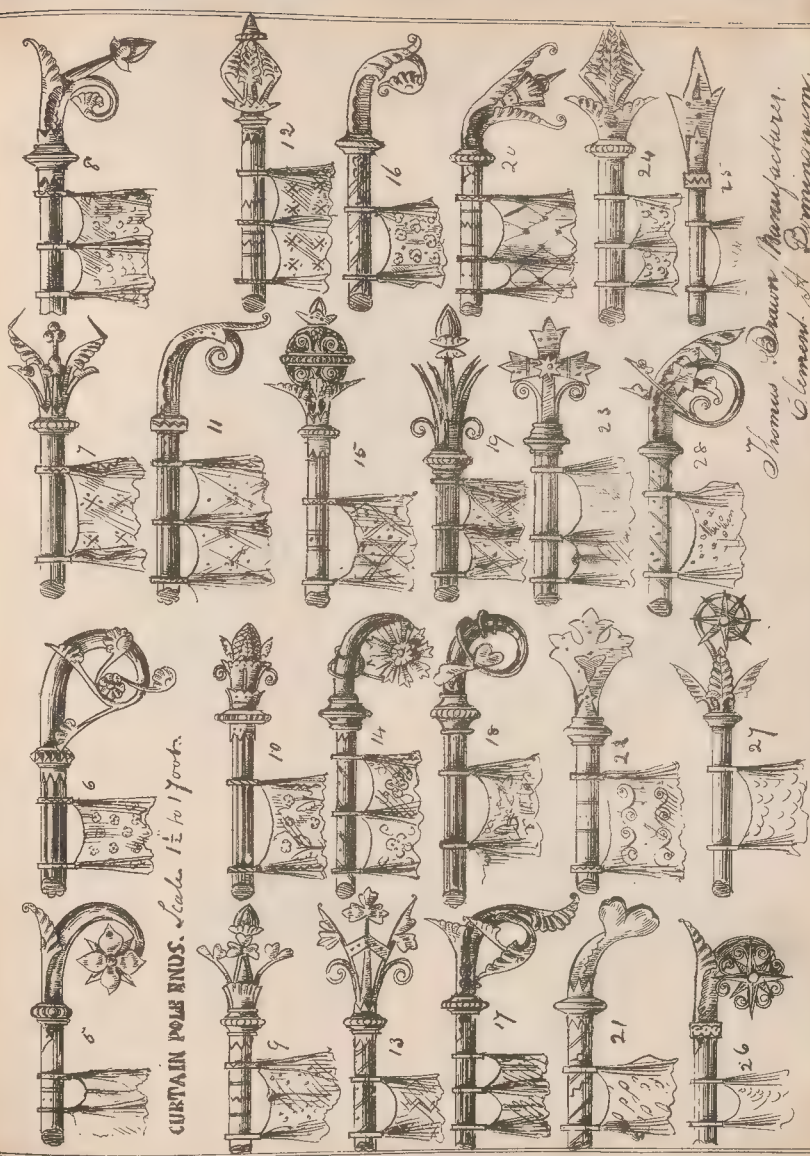 5 6 7 8
CURTAIN POLE ENDS. Scale 1½" to 1 Foot.
9 10 11 12
13 14 15 16
17 18 19 20
21 22 23 24
25
26 27 28
Thomas Brawn Manufacturer.
Clement St Birmingham